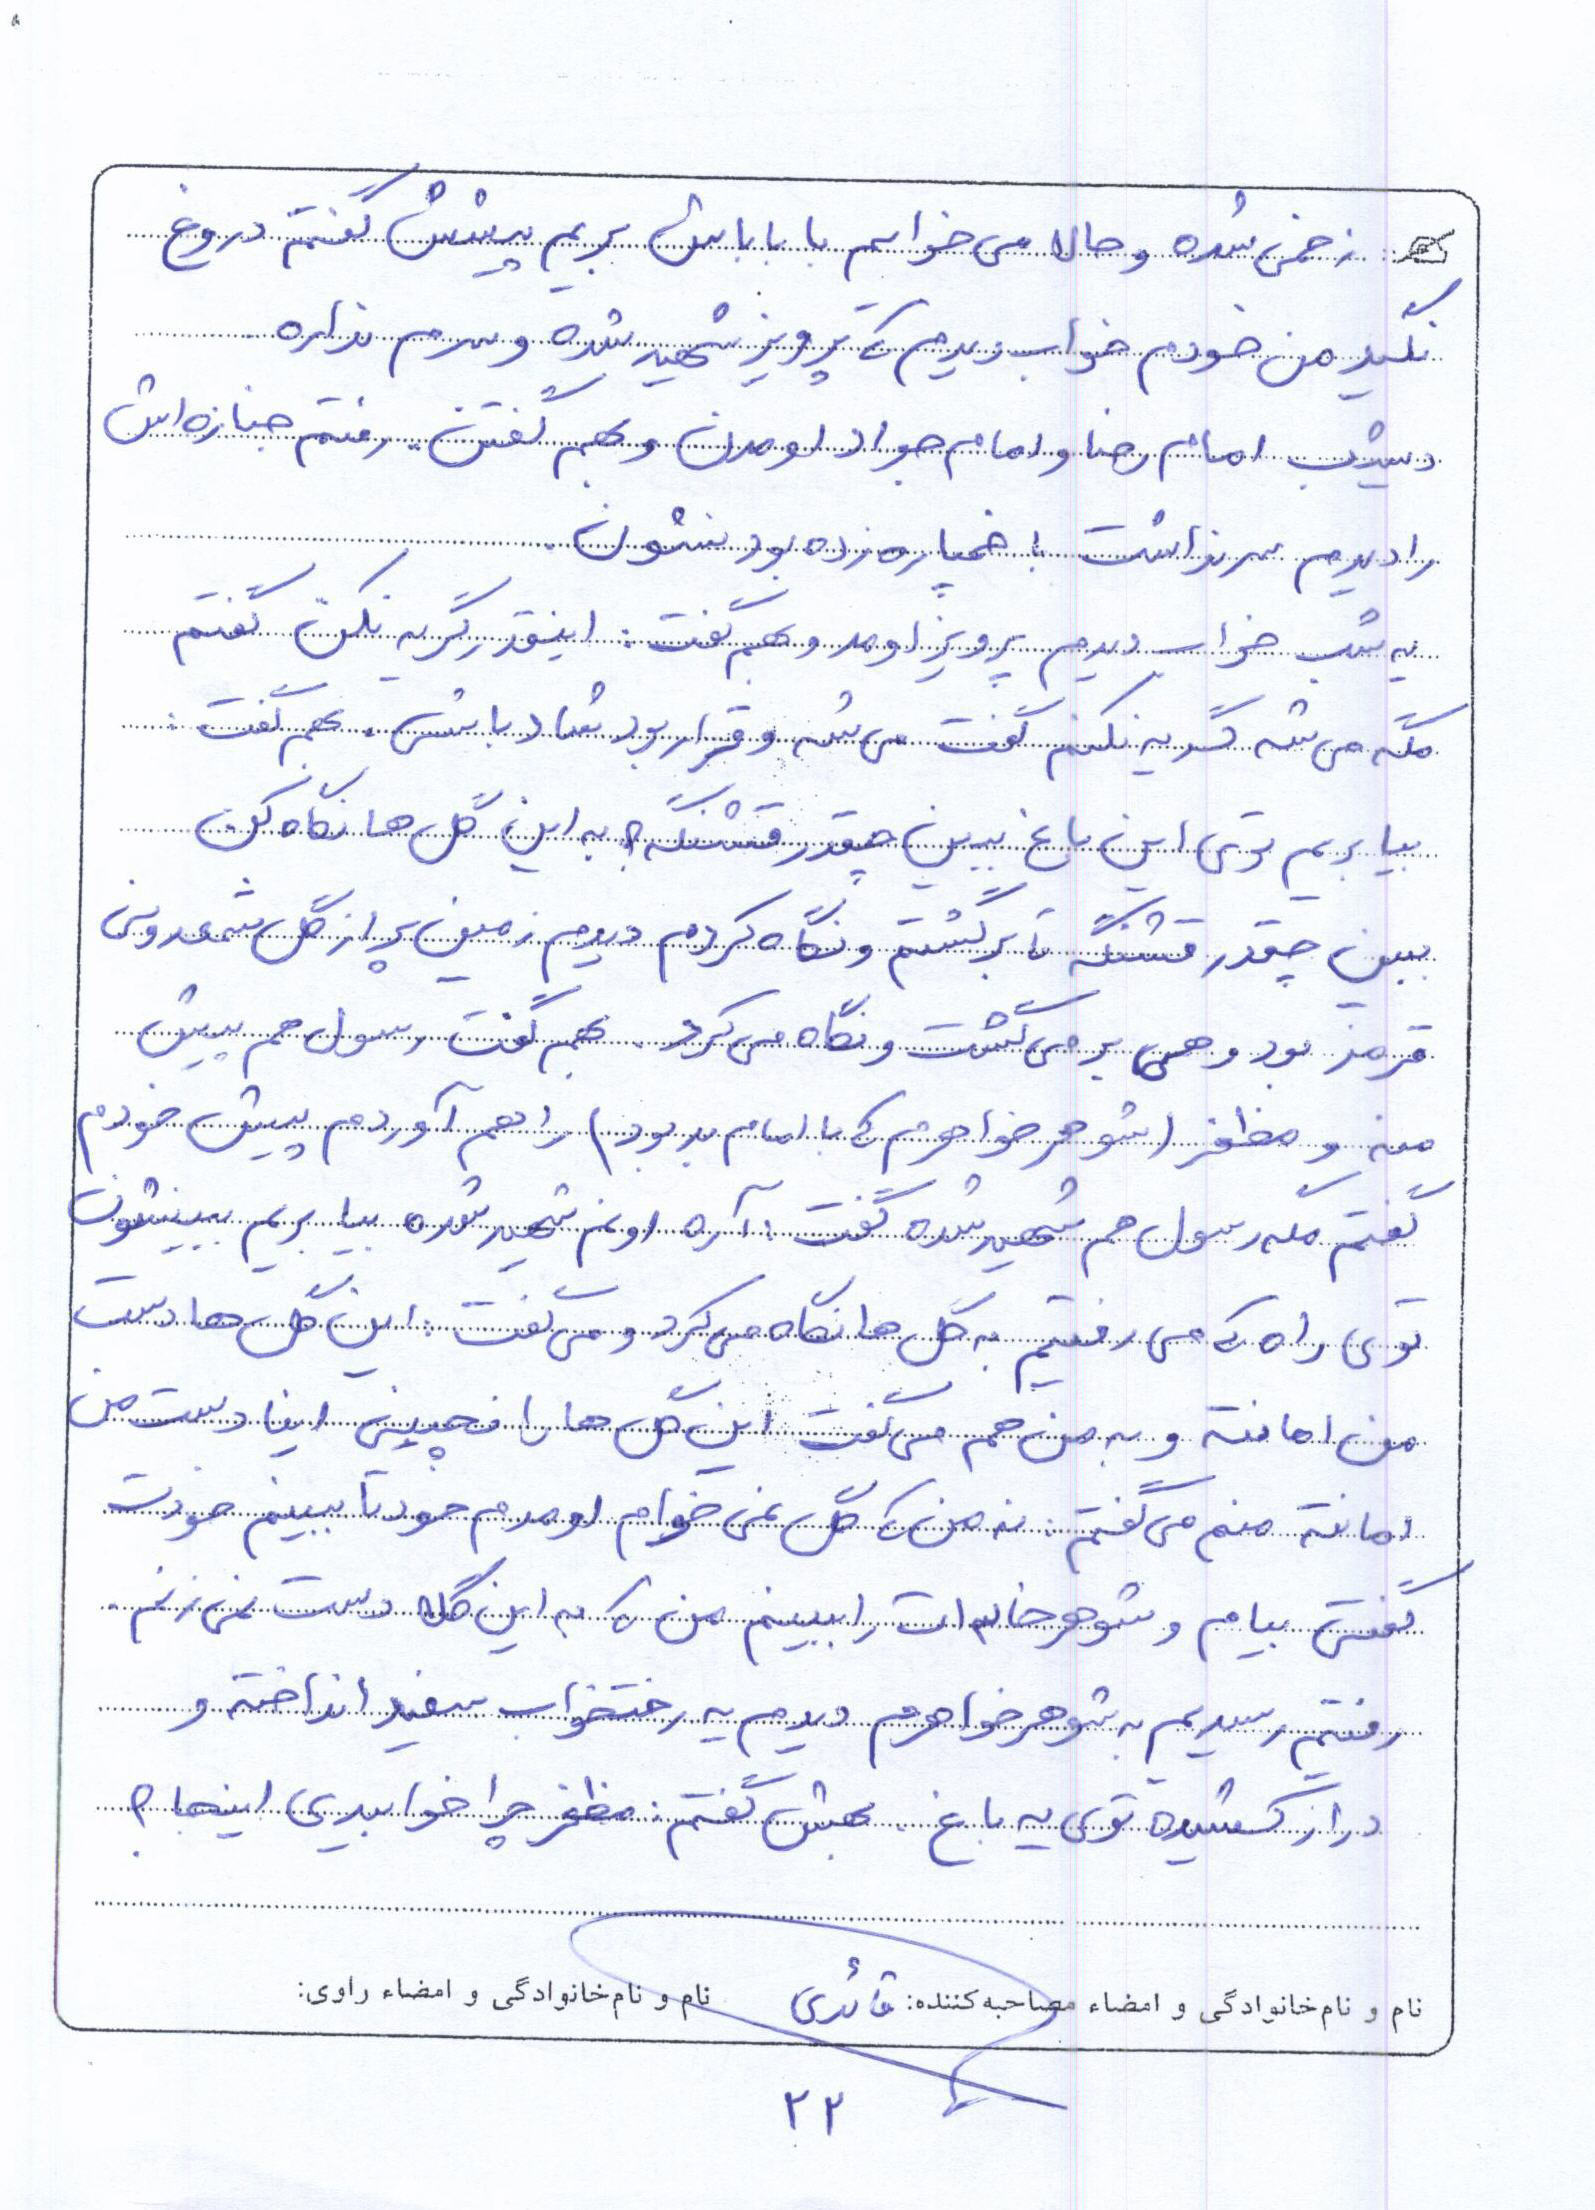 زخمی شده و حالا می خوایم با باباش بریم پیشش گفتم دروغ
نگید من خودم خواب دیدم که پرویز شهید شده و سرم نداره
دیشب امام رضا و امام جواد اومدن و بهم گفتن. رفتم جنازه اش
را دیدم سر نداشت با خمپاره زده بودنشون.
یه شب خواب دیدم پرویز اومد و بهم گفت: اینقدر گریه نکن گفتم
مگه می شه گریه نکنم گفت می شه و قرار بود شاد باشی. بهم گفت:
بیا بریم توی این باغ ببین چقدر قشنگه؟ به این گل ها نگاه کن
ببین چقدر قشنگه تا برگشتم و نگاه کردم دیدم زمین پر از گل شمعدونی
قرمز بود و هی بر می گشت و نگاه می کرد. بهم گفت رسول هم پیش
منه و مظفر (شوهر خواهرم که با امام بد بود) را هم آوردم پیش خودم
گفتم مگه رسول هم شهید شده گفت: آره اونم شهید شده بیا بریم ببینیشون
توی راه که می رفتیم به گل ها نگاه می کرد و می گفت: این گل ها دست
من امانته و به من هم می گفت این گل ها را نچینی اینا دست من
امانته منم می گفتم: نه من که گل نمی خوام اومدم خودتا ببینم خودت
گفتی بیام و شوهر خاله ات را ببینم من که به این گلا دست نمی زنم.
رفتیم رسیدیم به شوهر خواهرم دیدم یه رختخواب سفید انداخته و
دراز کشیده توی یه باغ. بهش گفتم: مظفر چرا خوابیدی اینجا؟
نام و نام خانوادگی و امضاء مصاحبه کننده: قائدی نام و نام خانوادگی و امضاء راوی:
۲۲